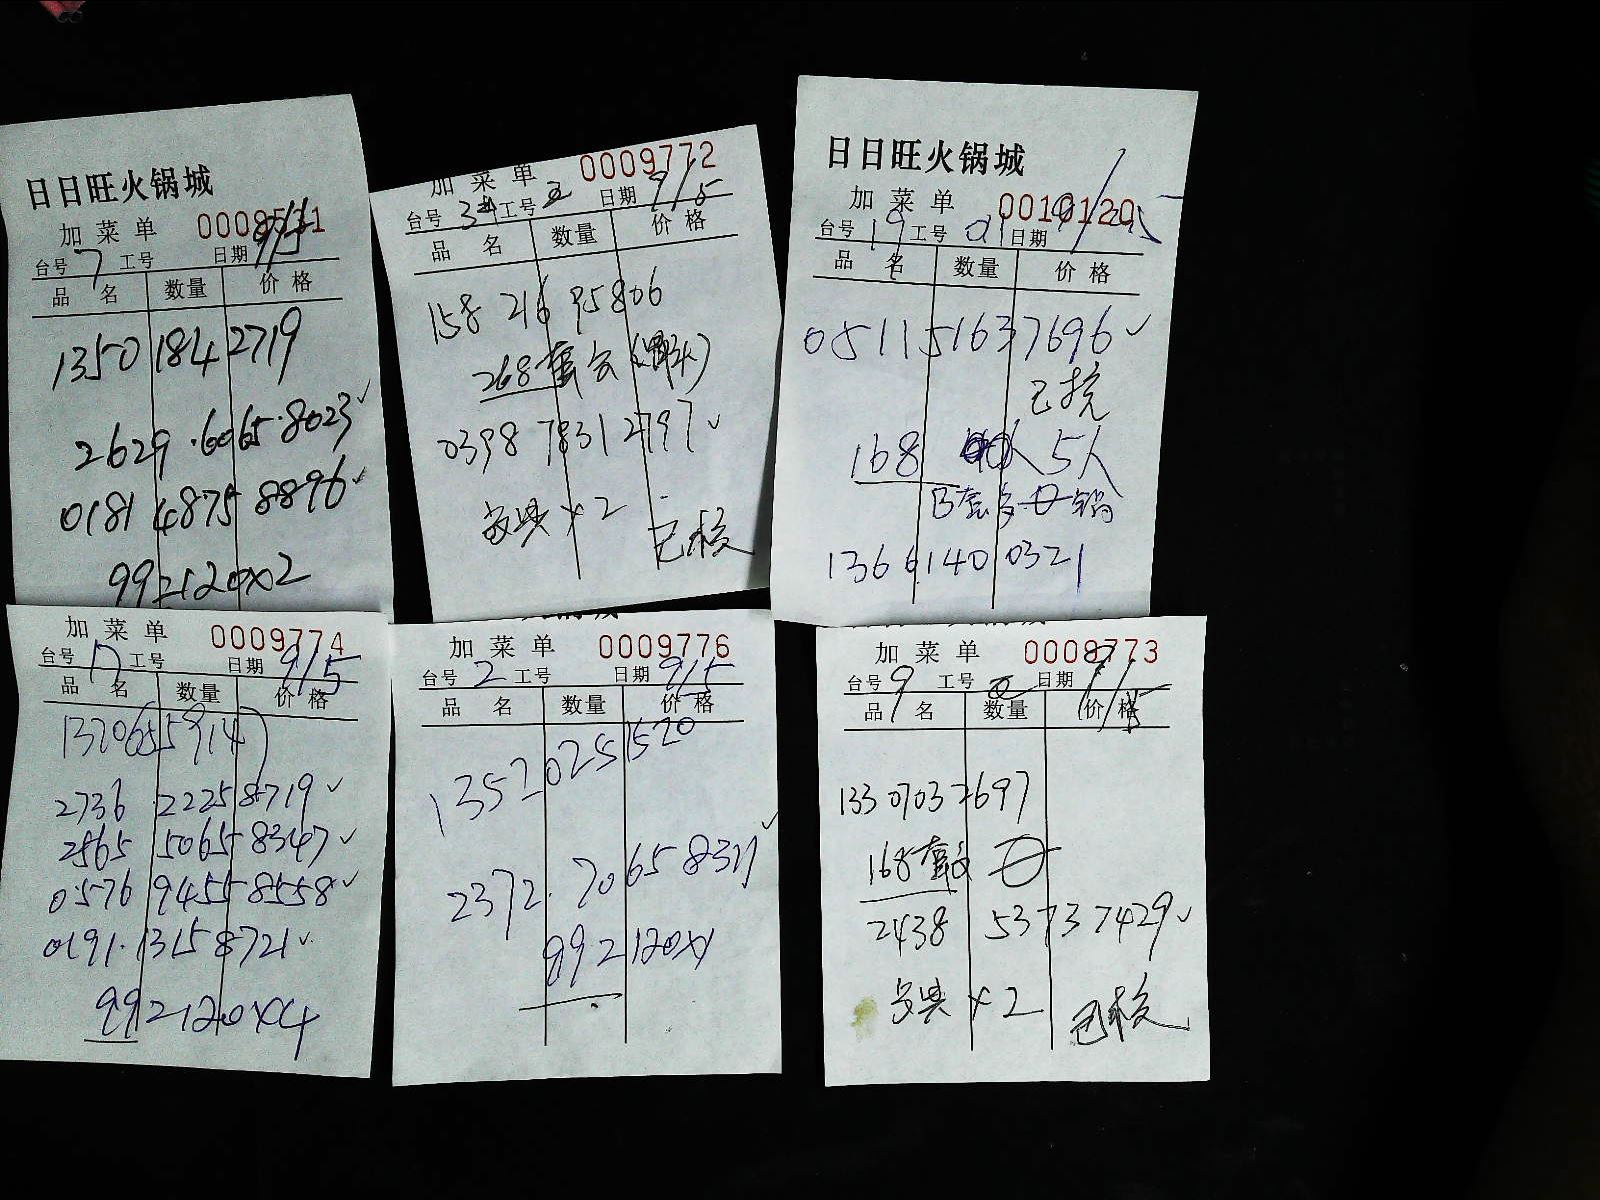 日日旺火锅城
加菜单
台号 7 工号 日期 9/5
品名 数量 价格
1350 184 2719
2629 .6065.8023✓
0181 4875 8896✓
99 2120x2
加菜单 0009772
台号 工号 日期 9/5
品名 数量 价格
158 216 95806
268套
0398 7831 2797✓
x2
已核
日日旺火锅城
加菜单 0010120
台号 19 工号 01 日期 9/5
品名 数量 价格
0511 5163 7696✓
已核
168 5人
B套 锅
1366140 0321
加菜单 0009774
台号 17 工号 日期 9/5
品名 数量 价格
2736 2225 8719✓
2565 5065 8347✓
0576 9455 8558✓
0191.1315 8721✓
99 2120x4
加菜单 0009776
台号 2 工号 日期 9/5
品名 数量 价格
1352 025 1520
2372.7065 8321✓
89 2120x1
加菜单 0009773
台号 9 工号 日期 9/5
品名 数量 价格
133 0703 7697
168套
2438 5373 7429✓
x2 已核